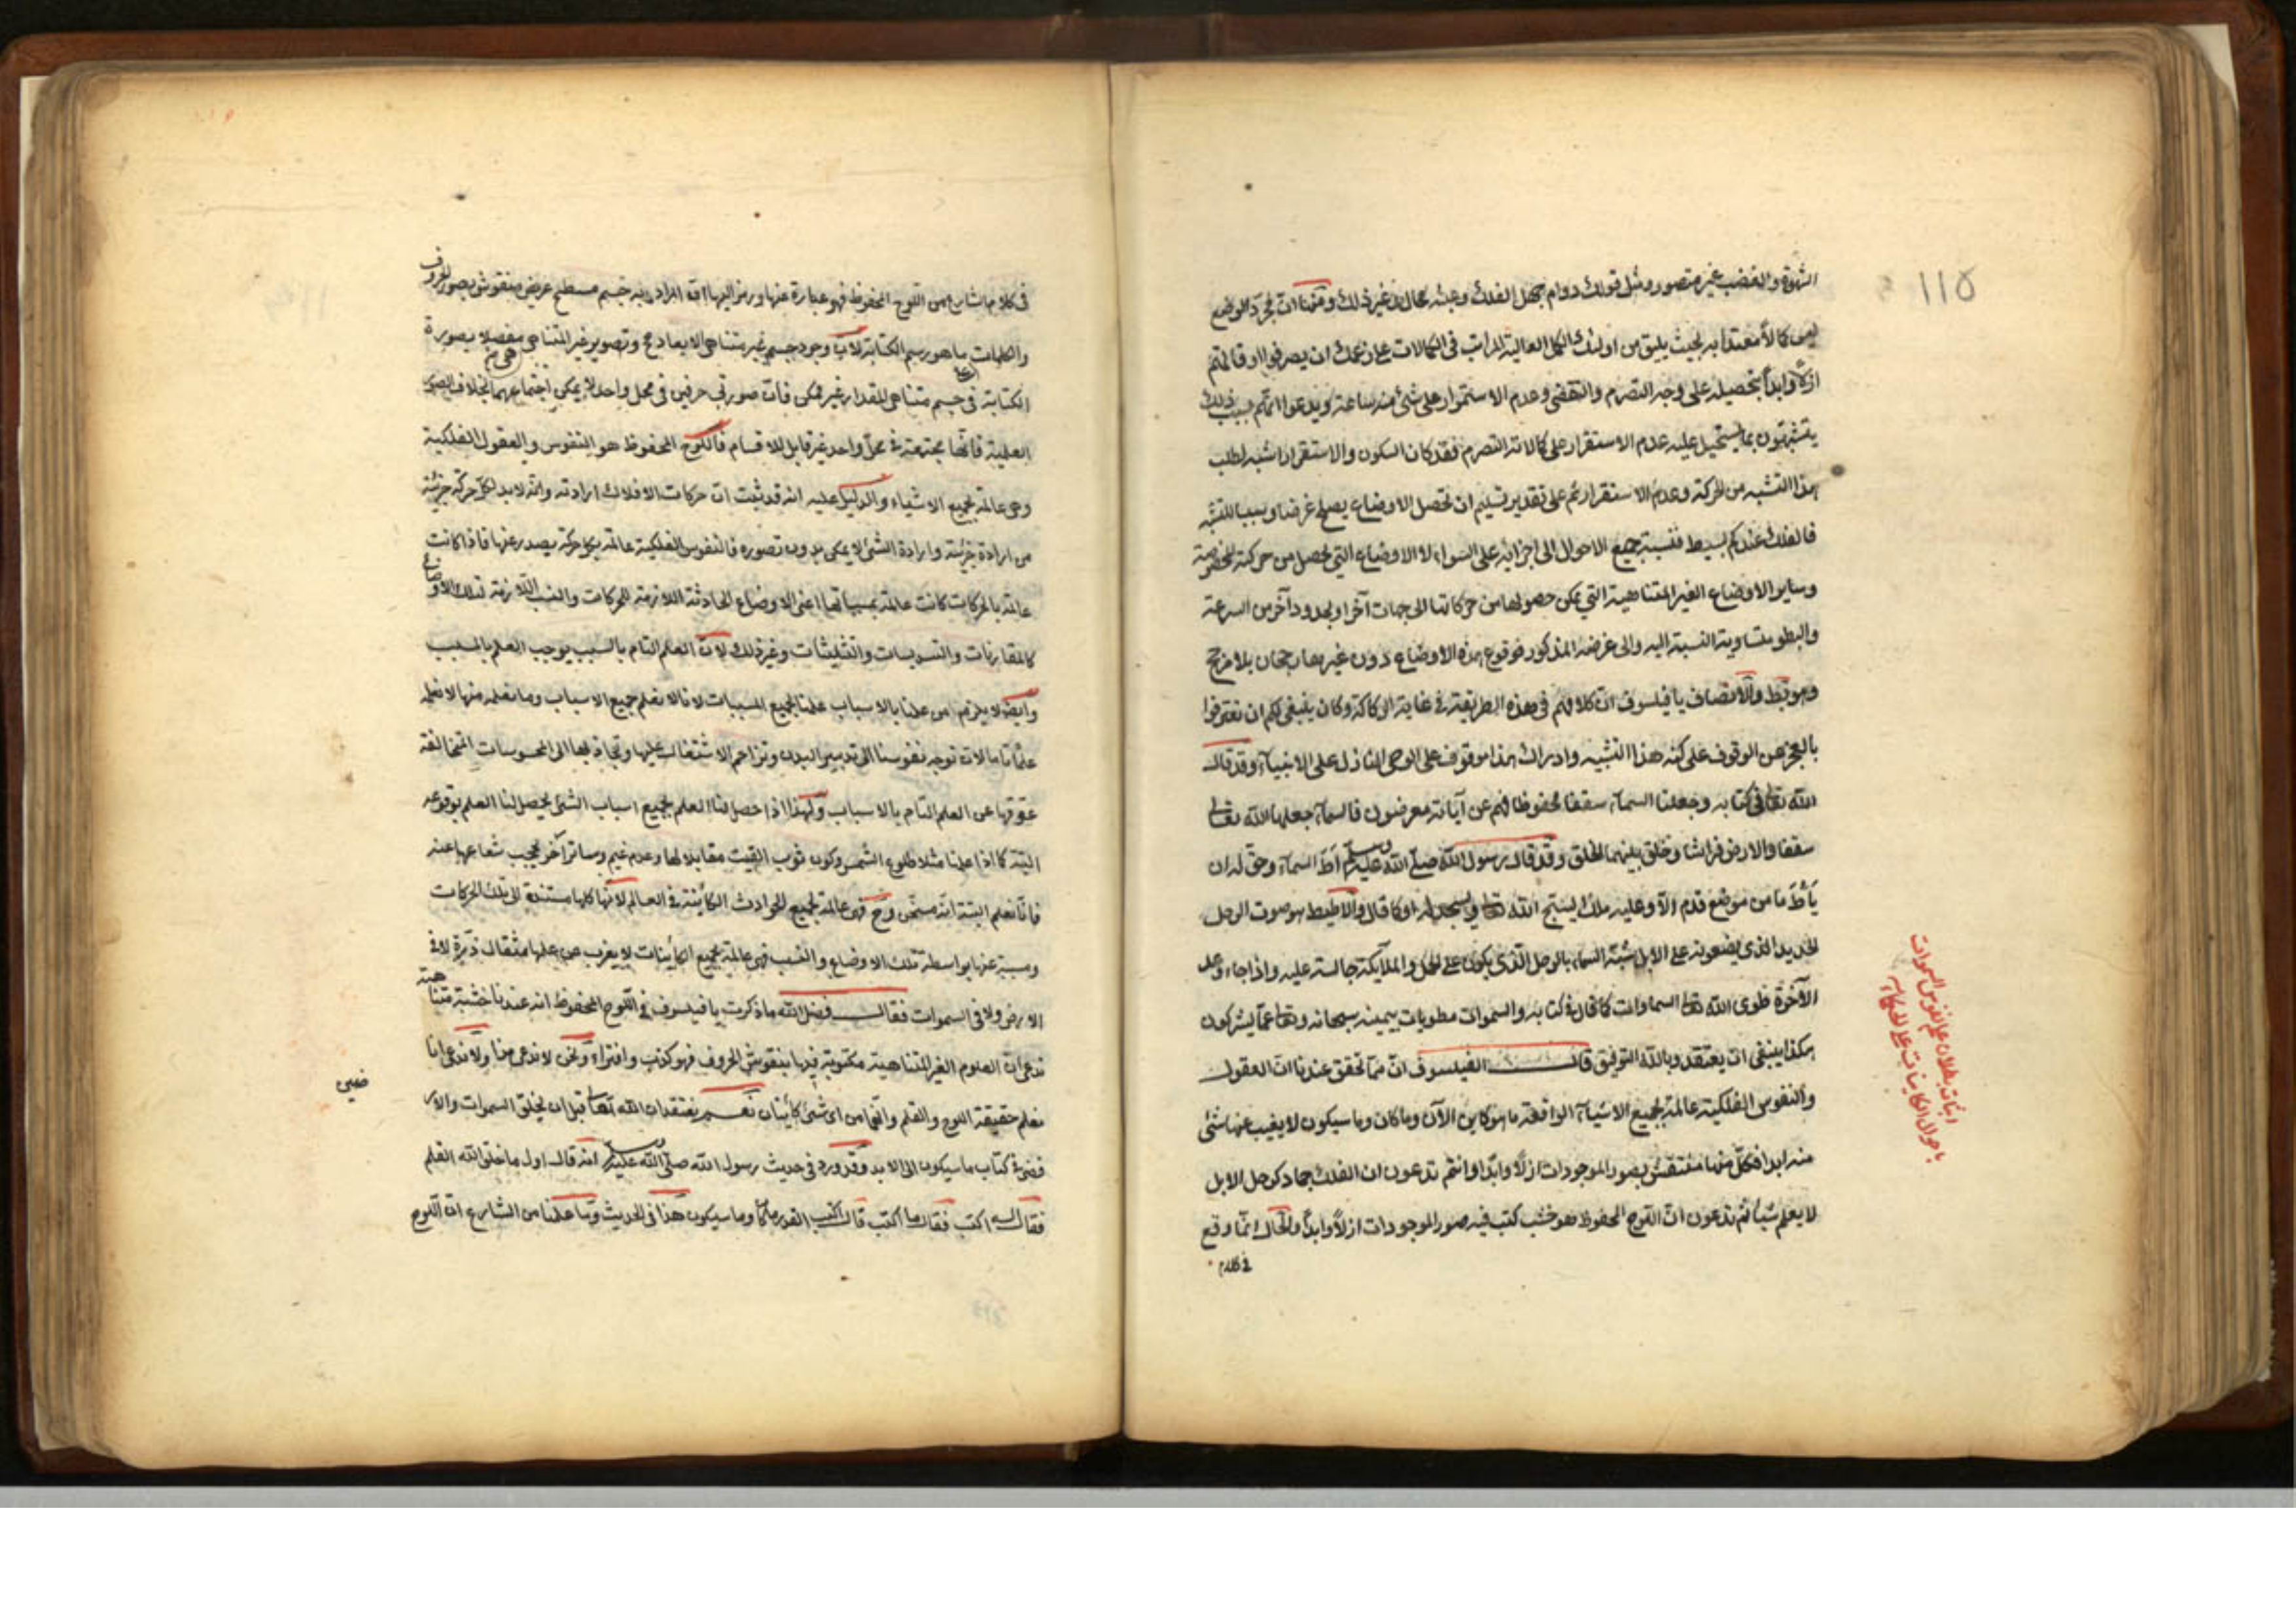 ١١٥
الشهوة والغضب غير متصور ومثل قولك دوام جهل الفلك وعبثه محال الى غير ذلك ومنها ان مجرد الوضع
ليس كمالا معتدا به بحيث يليق من اولئك الكمل العالية المراتب فى الكمالات على زعمك ان يصرفوا اوقاتهم
ازلا وابدا بتحصيله على وجه التصرم والتقضى وعدم الاستمرار على شئ منه ساعة ويدعوا انهم بسبب ذلك
يتشبهون بما يستحيل عليه عدم الاستقرار على كمالاته التصرم فقد كان السكون والاستقرار اشبه لطلب
هذا التشبه من الحركة وعدم الاستقرار ثم على تقدير تسليم ان تحصل الاوضاع يصلح غرضا وسببا للتشبه
فالفلك عندكم بسيط فنسبة جميع الاحوال الى اجزائه على السواء لا الاوضاع التى تحصل من حركته المخصوصة
وساير الاوضاع الغير المتناهية التى يمكن حصولها من حركاتها الى جهات آخر او بحدود آخر من السرعة
والبطو متساوية النسبة اليه والى غرضه المذكور فوقوع هذه الاوضاع دون غيرها رجحان بلا مرجح
وهو بط والانصاف يا فيلسوف ان كلامهم فى هذه الطريقة فى غاية الركاكة وكان ينبغى لكم ان تعترفوا
بالعجز عن الوقوف على كنه هذا التشبه وادراك هذا موقوف على الوحى النازل على الانبياء وقد قال
الله تعالى فى كتابه وجعلنا السماء سقفا محفوظا وهم عن آياته معرضون فالسماء جعلها الله تعالى
سقفا والارض فراشا وخلق بينهما الخلق وقد قال رسول الله صلى الله عليه وسلم اط السماء وحق له ان
يأط ما من موضع قدم الا وعليه ملك يسبح الله تعالى ويسجد له او كما قال والاطيط هو صوت الرحل
الحديد الذى يضعونه على الابل شبه السماء بالرحل الذى يكون على الجمل والملائكة جالسة عليه واذا جاء وعد
الآخرة طوى الله تعالى السماوات كما قال فى كتابه والسموات مطويات بيمينه سبحانه وتعالى عما يشركون
هكذا ينبغى ان يعتقد وبالله التوفيق قال الفيلسوف ان مما تحقق عندنا ان العقول
والنفوس الفلكية عالمة بجميع الاشياء الواقعة ما هو كاين الآن وما كان وما سيكون لا يغيب عنها شئ
منه ابدا فكل منها منتقش بصور الموجودات ازلا وابدا وانتم تدعون ان الفلك جماد كرحل الابل
لا يعلم شيأ ثم تدعون ان اللوح المحفوظ هو خشب كتب فيه صور الموجودات ازلا وابدا والحال انما وقع
فى كلام
اثبات بطلان علم نفوس السموات
باحوال الكاينات
فى كلام الشارع من اللوح المحفوظ فهو عبارة عنها ورمز اليها اذ المراد به جسم مسطح عريض منقوش بصور الحروف
والكلمات ما هو رسم الكتابة لان وجود جسم غير متناهى الابعاد مح وتصوير غير المتناهى مفصلا بصورة
الكتابة فى جسم متناهى المقدار غير ممكن فان صورتى حرفين فى محل واحد لا يمكن اجتماعهما بخلاف الصور
العلمية فانها مجتمعة فى محل واحد غير قابل للاقسام فاللوح المحفوظ هو النفوس والعقول الفلكية
وهى عالمة بجميع الاشياء والدليل عليه انه قد ثبت ان حركات الافلاك ارادته وانه لا بد لكل حركة جزئية
من ارادة جزئية وارادة الشئ لا يمكن بدون تصوره فالنفوس الفلكية عالمة بكل حركة يصدر عنها فاذا كانت
عالمة بالحركات كانت عالمة بمسبباتها اعنى الاوضاع الحادثة اللازمة للحركات والنسب اللازمة لتلك الاوضاع
كالمقارنات والتسديسات والتثليثات وغير ذلك لان العلم التام بالسبب يوجب العلم بالمسبب
وايضا لا يلزم من علمنا بالاسباب علمنا بجميع المسببات لانا لا نعلم جميع الاسباب وما نعلمه منها لا نعلمه
علما تاما لان توجه نفوسنا الى تدبير البدن وتزاحم الاشتغال عليها وتجاذبها الى المحسوسات المتخالفة
عوقها عن العلم التام بالاسباب ولهذا اذا حصل لنا العلم بجميع اسباب الشئ يحصل لنا العلم بوقوعه
البتة كما اذا علمنا مثلا طلوع الشمس وكون ثوب القيت مقابلا لها وعدم غيم وساتر آخر يحجب شعاعها عنه
فانا نعلم البتة انه مسخن وح فهى عالمة بجميع الحوادث الكائنة فى العالم لانها كلها مستندة الى تلك الحركات
ومسببة عنها بواسطة تلك الاوضاع والنسب فهى عالمة بجميع الكائنات لا يعزب عن علمها مثقال ذرة لا فى
الارض ولا فى السموات فقال فضل الله ما ذكرت يا فيلسوف فى اللوح المحفوظ انه عندنا خشبة متناهية
تدعى ان العلوم الغير المتناهية مكتوبة فيها بنقوش الحروف فهو كذب وافتراء ونحن لا ندعى هذا ولا ندعى انا
نعلم حقيقة اللوح والقلم وانهما من اى شئ كائنان نعم نعتقد ان الله تعالى قبل ان يخلق السموات والار
ضين
فضرة كتاب ما سيكون الى الابد وقد ورد فى حديث رسول الله صلى الله عليه وسلم انه قال اول ما خلق الله القلم
فقال له اكتب فقال ما اكتب قال اكتب القدر ما كان وما سيكون هذا فى الحديث وما علمنا من الشارع ان اللوح